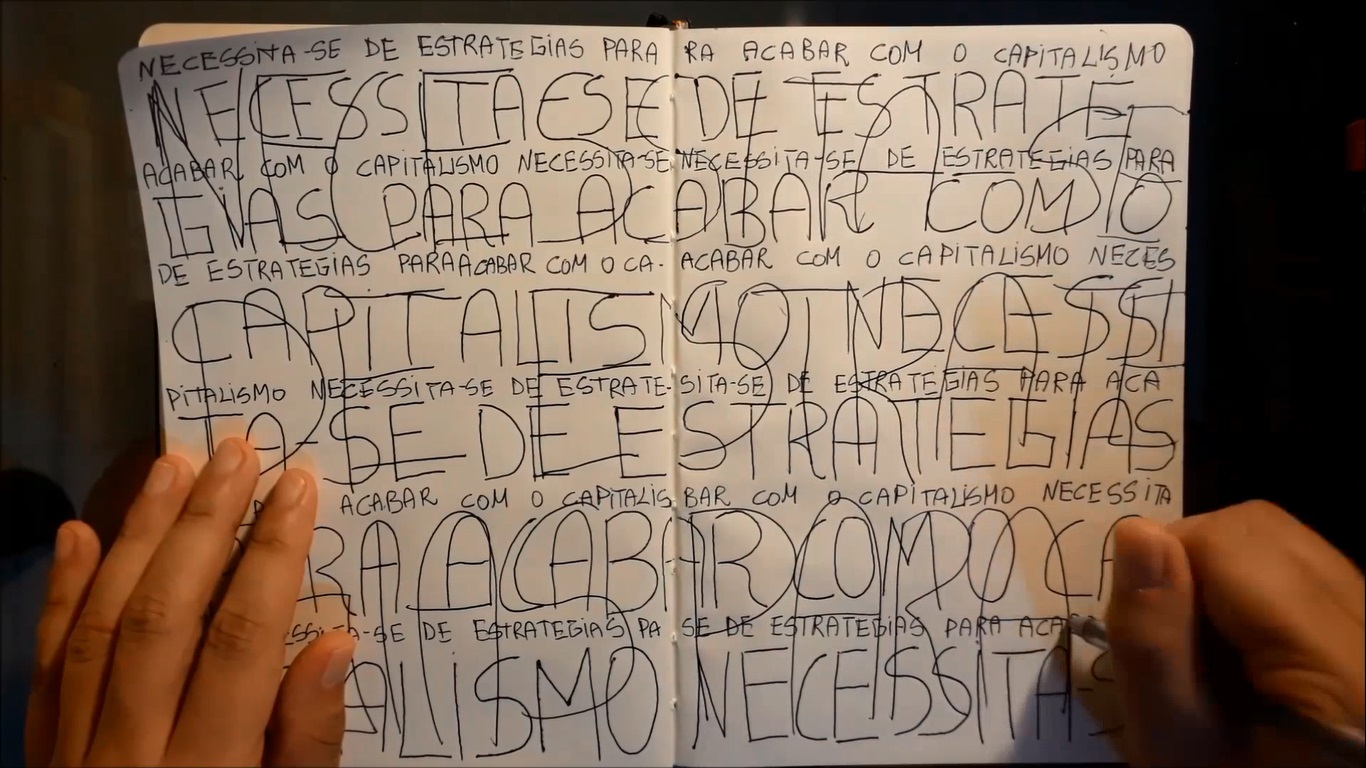 NECESSITA-SE DE ESTRATEGIAS PARA RA ACABAR COM O CAPITALISMO
NECESSITA-SE DE ESTRATE
ACABAR COM O CAPITALISMO NECESSITA-SE NECESSITA-SE DE ESTRATEGIAS PARA
GIAS PARA ACABAR COM O
DE ESTRATEGIAS PARA ACABAR COM O CA- ACABAR COM O CAPITALISMO NECES
CAPITALISMO NECESSI
PITALISMO NECESSITA-SE DE ESTRATE- SITA-SE DE ESTRATEGIAS PARA ACA
TA-SE DE ESTRATEGIAS
ACABAR COM O CAPITALIS BAR COM O CAPITALISMO NECESSITA
RA ACABAR COM O CA
SSITA-SE DE ESTRATEGIAS PA SE DE ESTRATEGIAS PARA ACA
TALISMO NECESSITA-S